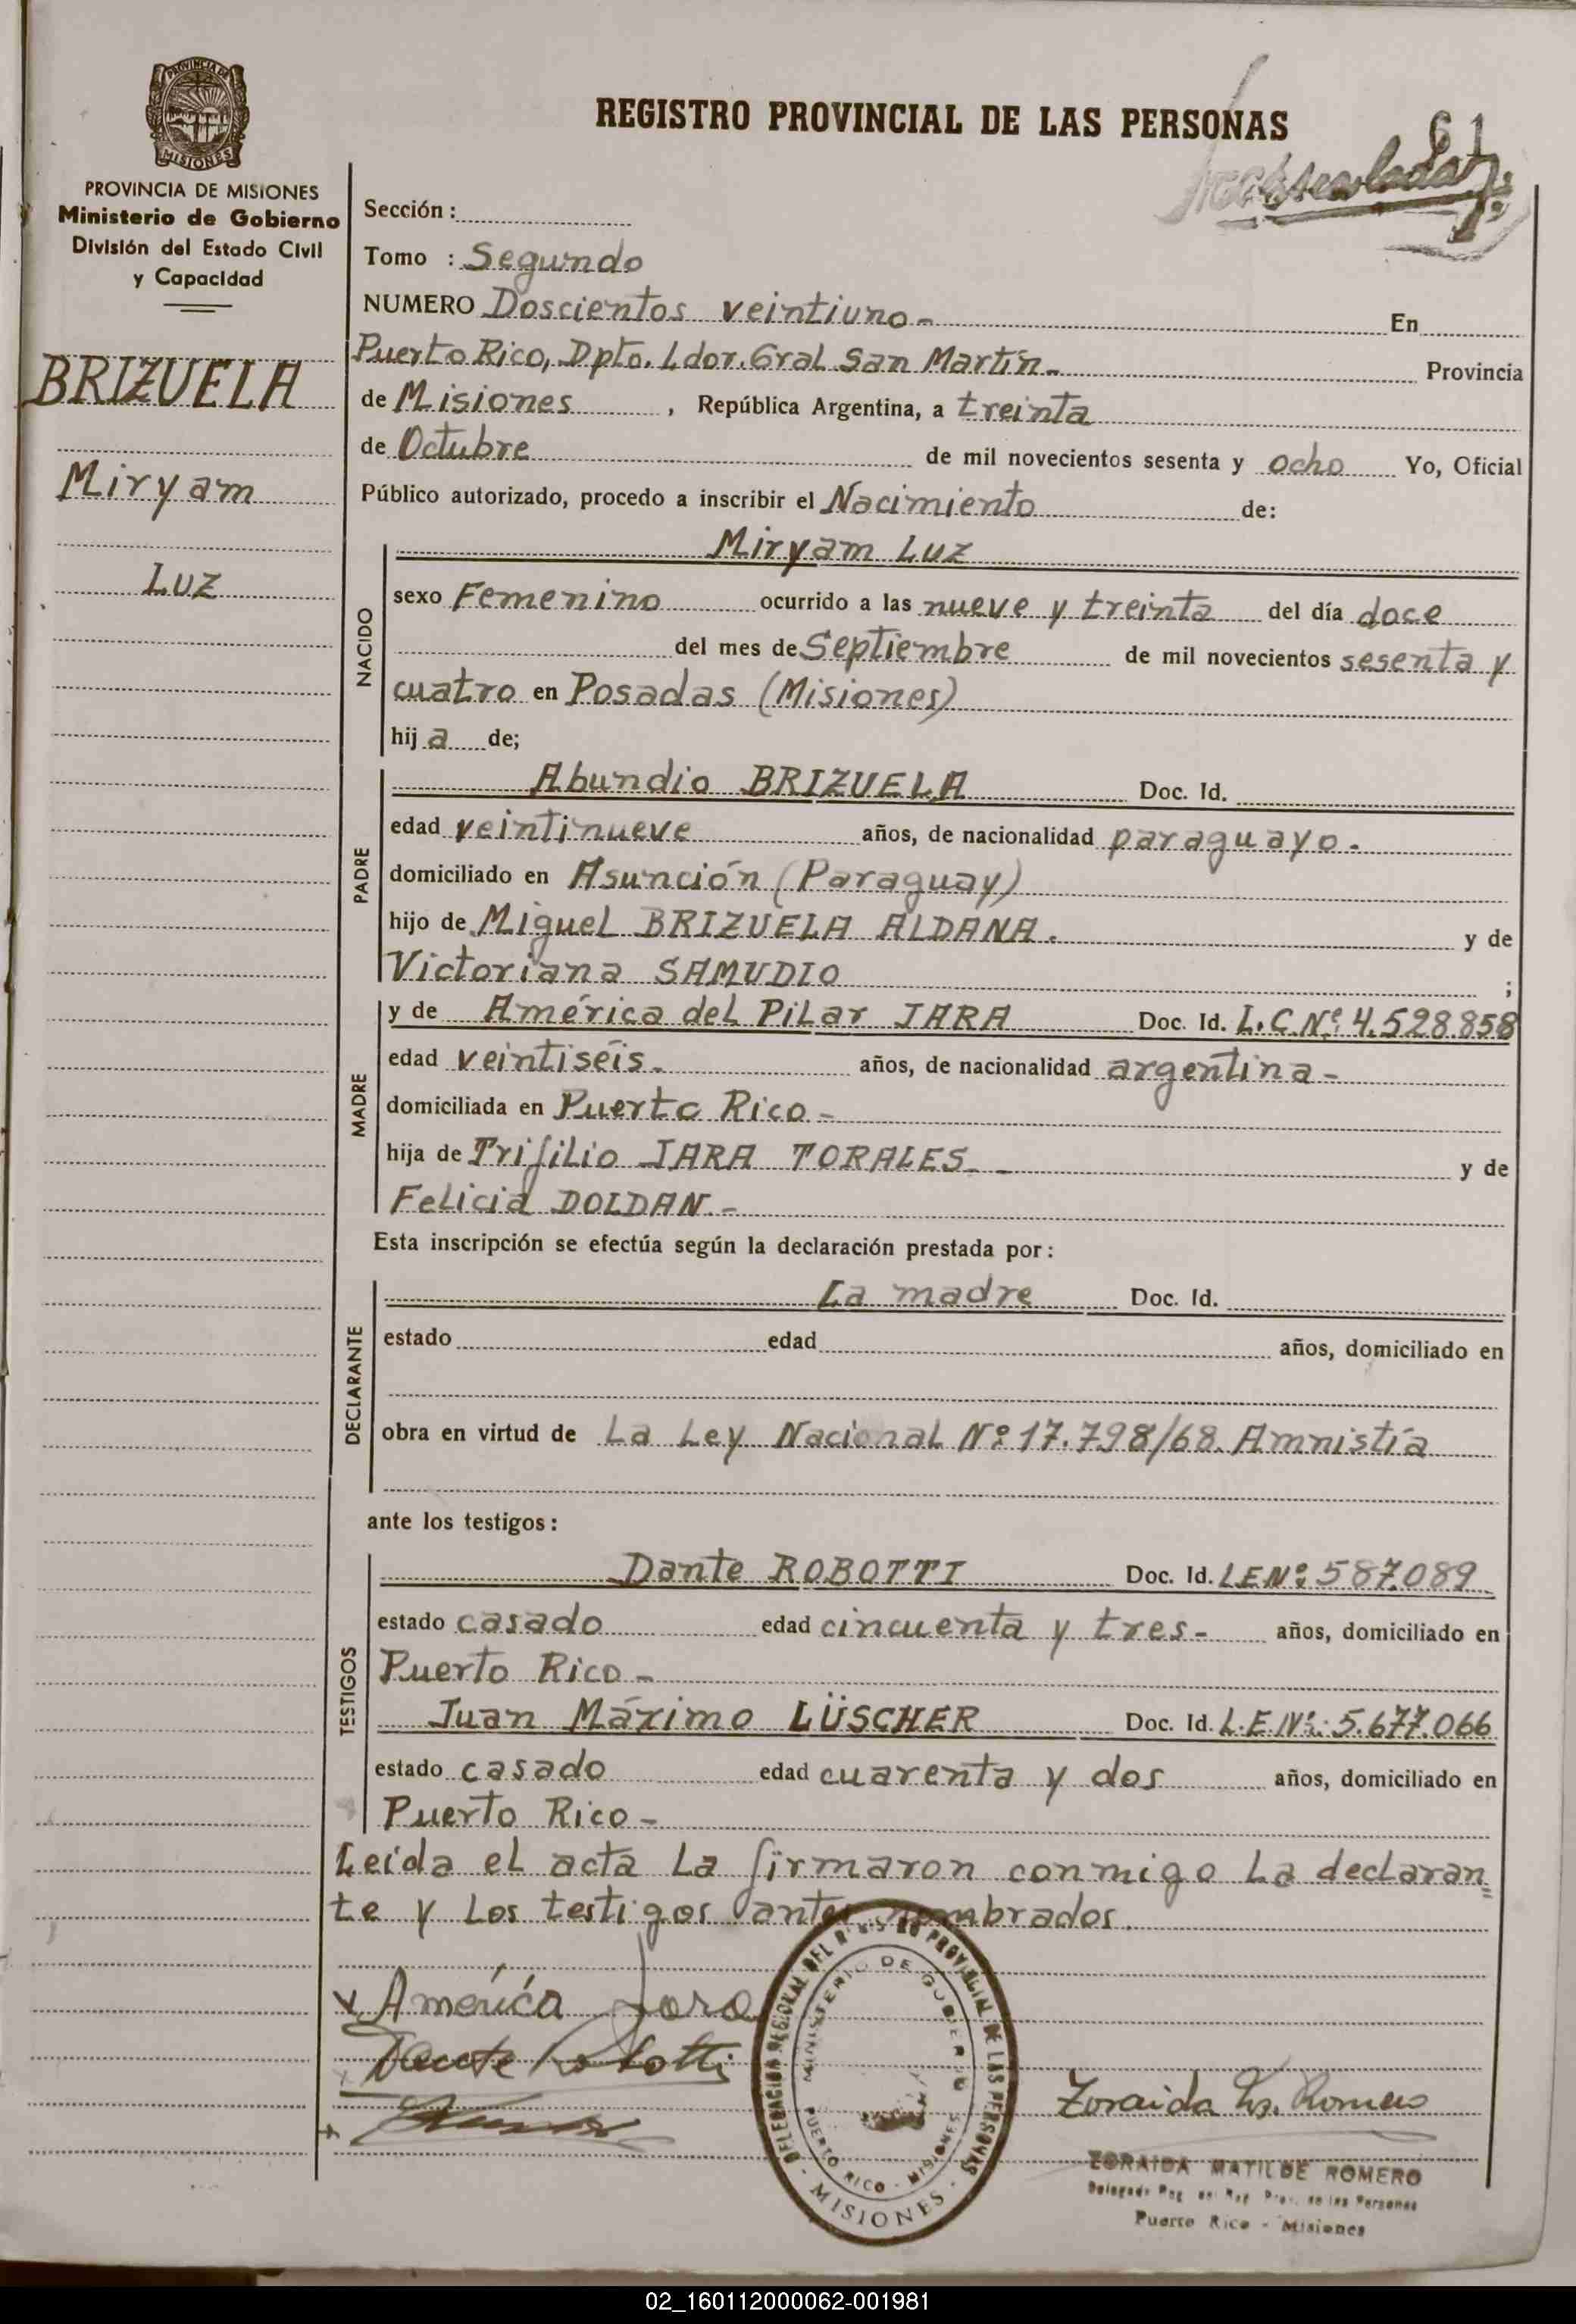 REGISTRO PROVINCIAL DE LAS PERSONAS
61
PROVINCIA DE
MISIONES
PROVINCIA DE MISIONES
Ministerio de Gobierno
División del Estado Civil
y Capacidad
BRIZUELA
Miryam
Luz
Sección :
Tomo : Segundo
NUMERO Doscientos veintiuno.- En
Puerto Rico, Dpto. Ldor. Gral San Martín.- Provincia
de Misiones , República Argentina, a treinta
de Octubre de mil novecientos sesenta y ocho Yo, Oficial
Público autorizado, procedo a inscribir el Nacimiento de:
NACIDO
Miryam Luz
sexo Femenino ocurrido a las nueve y treinta del día doce
del mes de Septiembre de mil novecientos sesenta y
cuatro en Posadas (Misiones)
hij a de;
PADRE
Abundio BRIZUELA Doc. Id.
edad veintinueve años, de nacionalidad paraguayo.
domiciliado en Asunción (Paraguay)
hijo de Miguel BRIZUELA ALDANA. y de
Victoriana SAMUDIO ;
MADRE
y de América del Pilar JARA Doc. Id. L.C.Nº 4.528.858
edad veintiséis. años, de nacionalidad argentina-
domiciliada en Puerto Rico-
hija de Trifilio JARA TORALES - y de
Felicia DOLDAN.-
Esta inscripción se efectúa según la declaración prestada por:
DECLARANTE
La madre Doc. Id.
estado edad años, domiciliado en
obra en virtud de La Ley Nacional Nº 17.798/68. Amnistía
ante los testigos:
TESTIGOS
Dante ROBOTTI Doc. Id. LENº 587.089
estado casado edad cincuenta y tres- años, domiciliado en
Puerto Rico-
Juan Máximo LÜSCHER Doc. Id. L.E.Nº: 5.677.066
estado casado edad cuarenta y dos años, domiciliado en
Puerto Rico-
Leida el acta La firmaron conmigo La declaran=
te y Los testigos antes nombrados.
América Jara
Dante Robotti
DELEGACIÓN REGIONAL DEL PROVINCIAL DE LAS PERSONAS
MINISTERIO DE GOBIERNO
PUERTO RICO - MISIONES
- MISIONES -
Zoraida Romero
ZORAIDA MATILDE ROMERO
Puerto Rico - Misiones
02_160112000062-001981